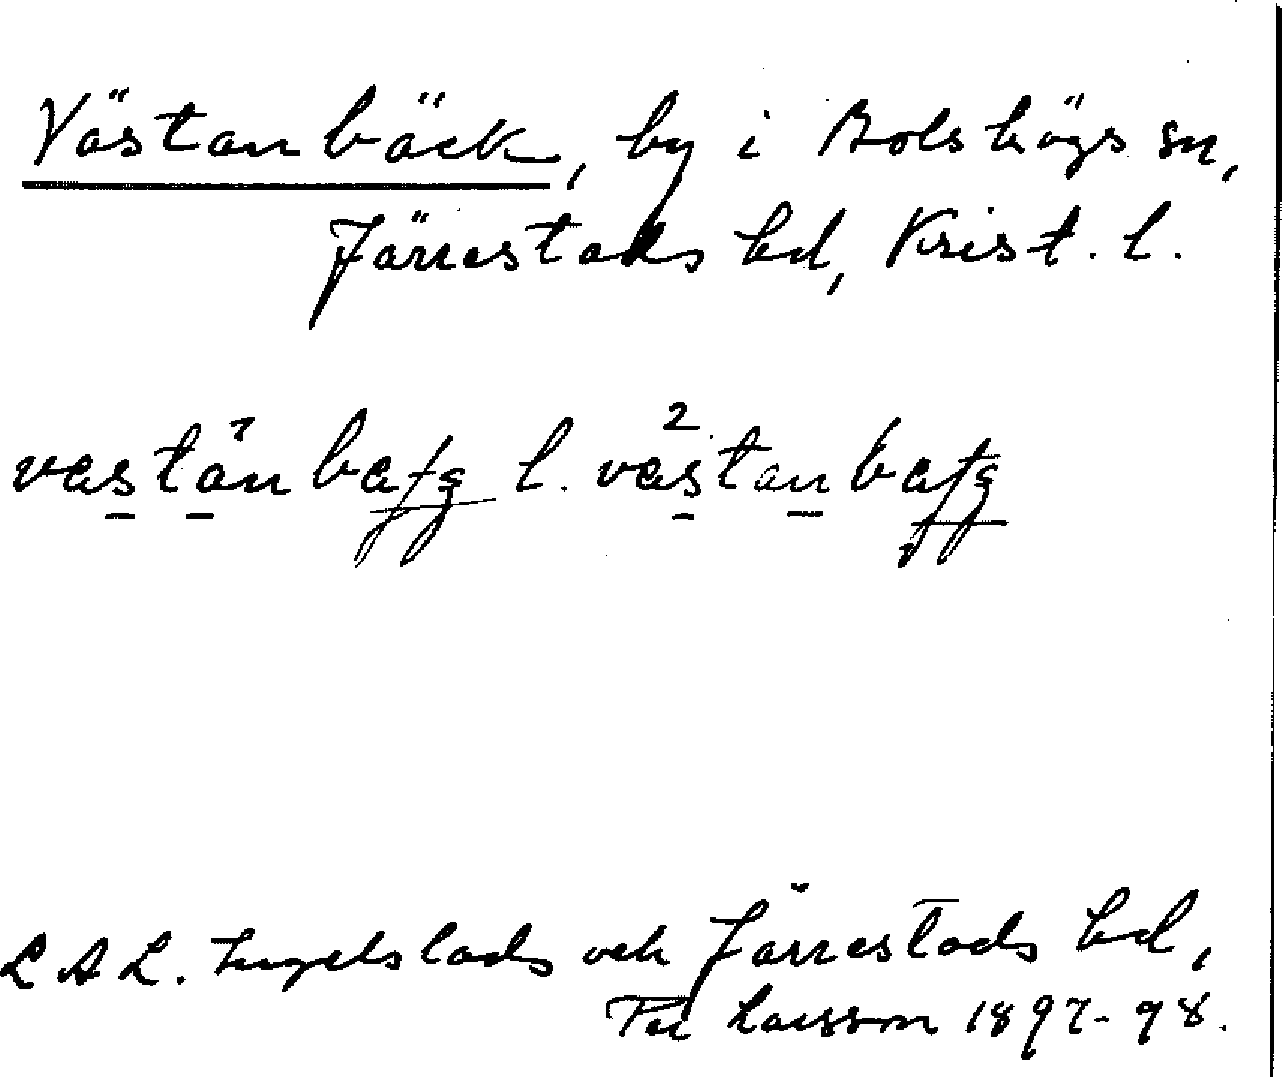 Västanbäck, by i Bolshögs sn,
Järrestads hd, Krist. l.
l.
LAL. Ingelstads och Järrestads hd,
Per Larsson 1897-98.